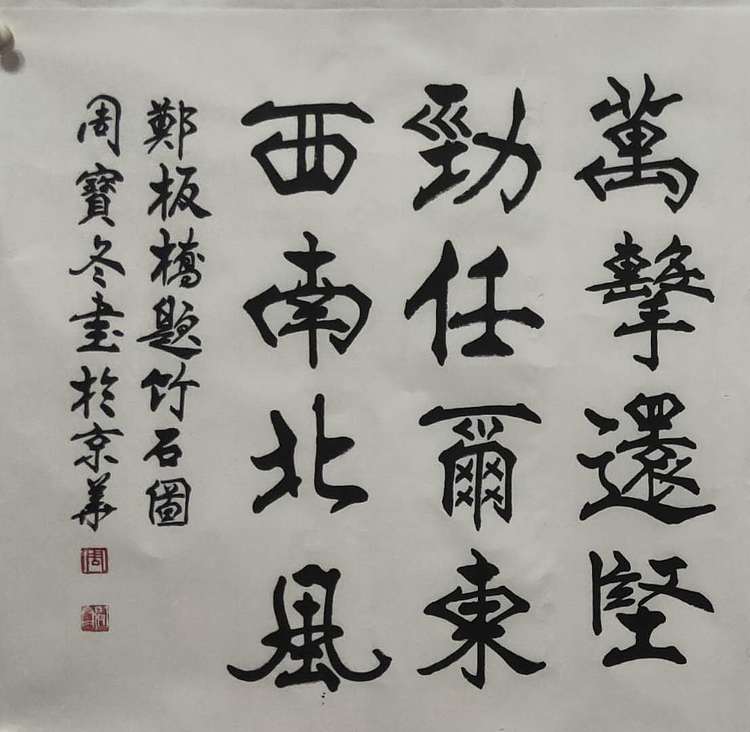 萬擊還堅
勁任爾東
西南北風
鄭板橋題竹石圖
周寶冬書於京華
周